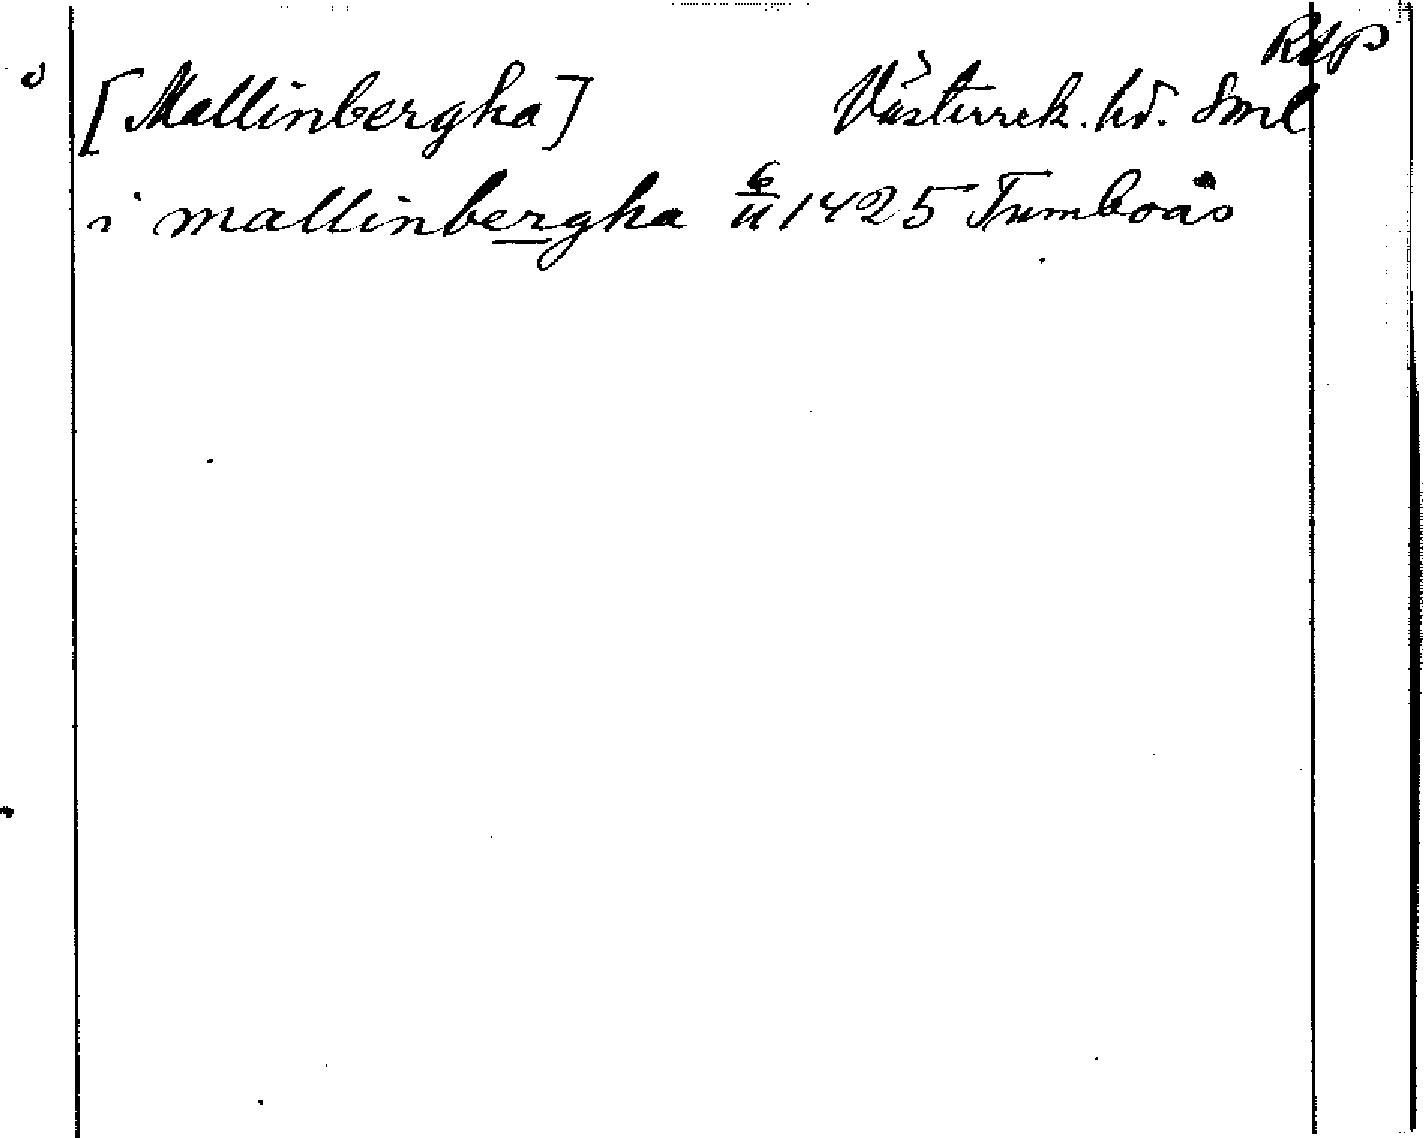 RAP
[Mallinbergha] Västerrek. hd. Sml
i mallinbergha 6/11 1425 Tumboås